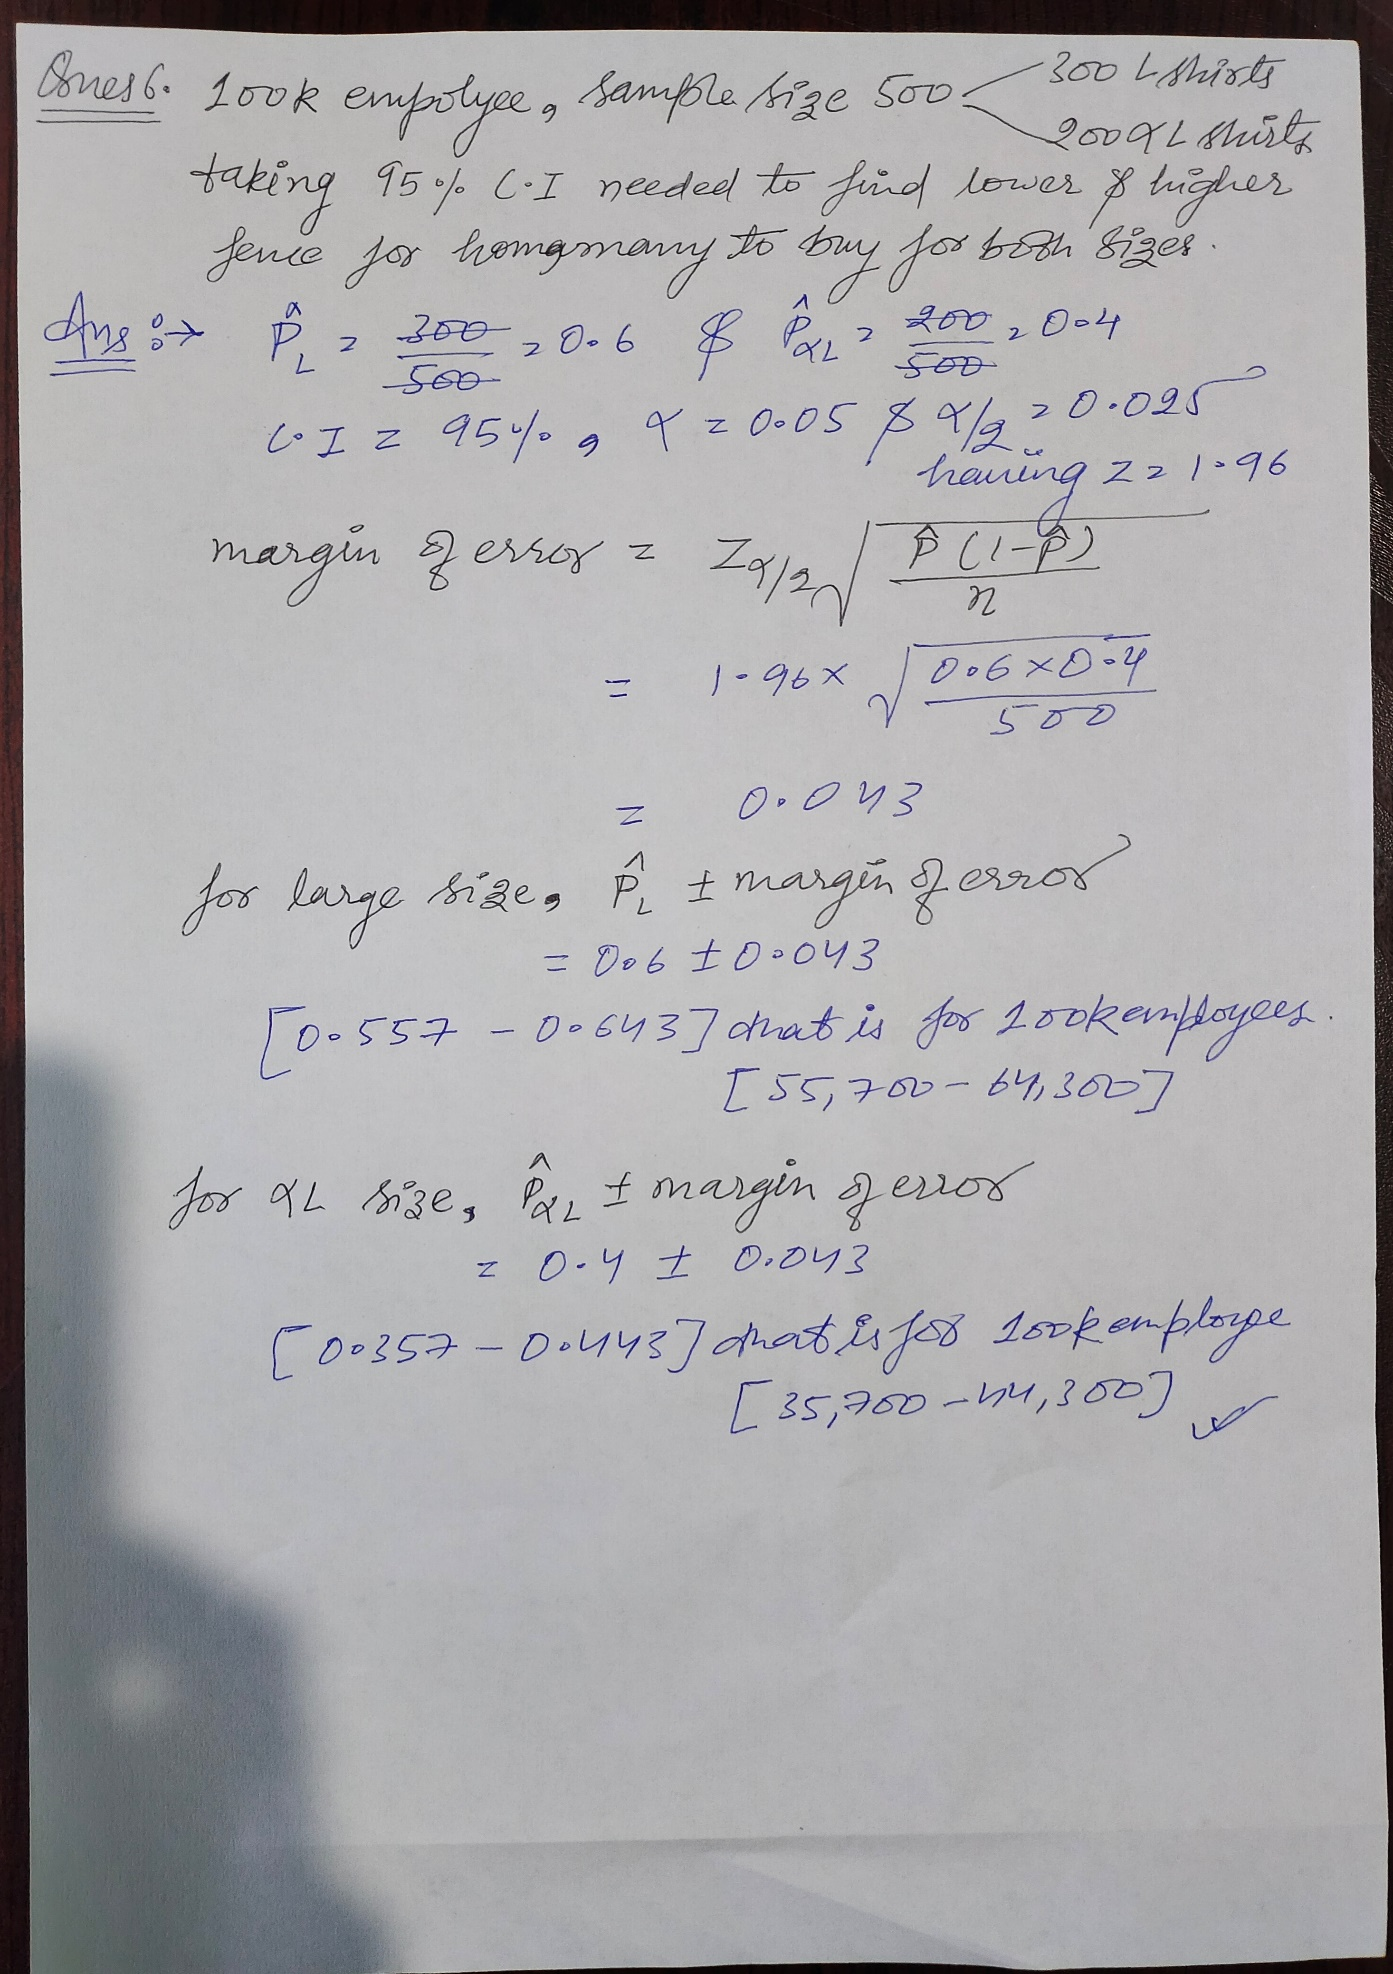 Ques 6. 100k empolyee, sample size 500 300 L shirts
200 XL shirts
taking 95% C.I needed to find lower & higher
fence for homgmany to buy for both sizes.
Ans :→ P̂L = 300/500 = 0.6 & P̂XL = 200/500 = 0.4
C.I = 95%, α = 0.05 & α/2 = 0.025
having Z = 1.96
margin of error = Zα/2 √(P̂(1-P̂)/n)
= 1.96 × √(0.6×0.4/500)
= 0.043
for large size, P̂L ± margin of error
= 0.6 ± 0.043
[0.557 - 0.643] that is for 100k employees.
[55,700 - 64,300]
for XL size, P̂XL ± margin of error
= 0.4 ± 0.043
[0.357 - 0.443] that is for 100k employe
[35,700 - 44,300] ✓